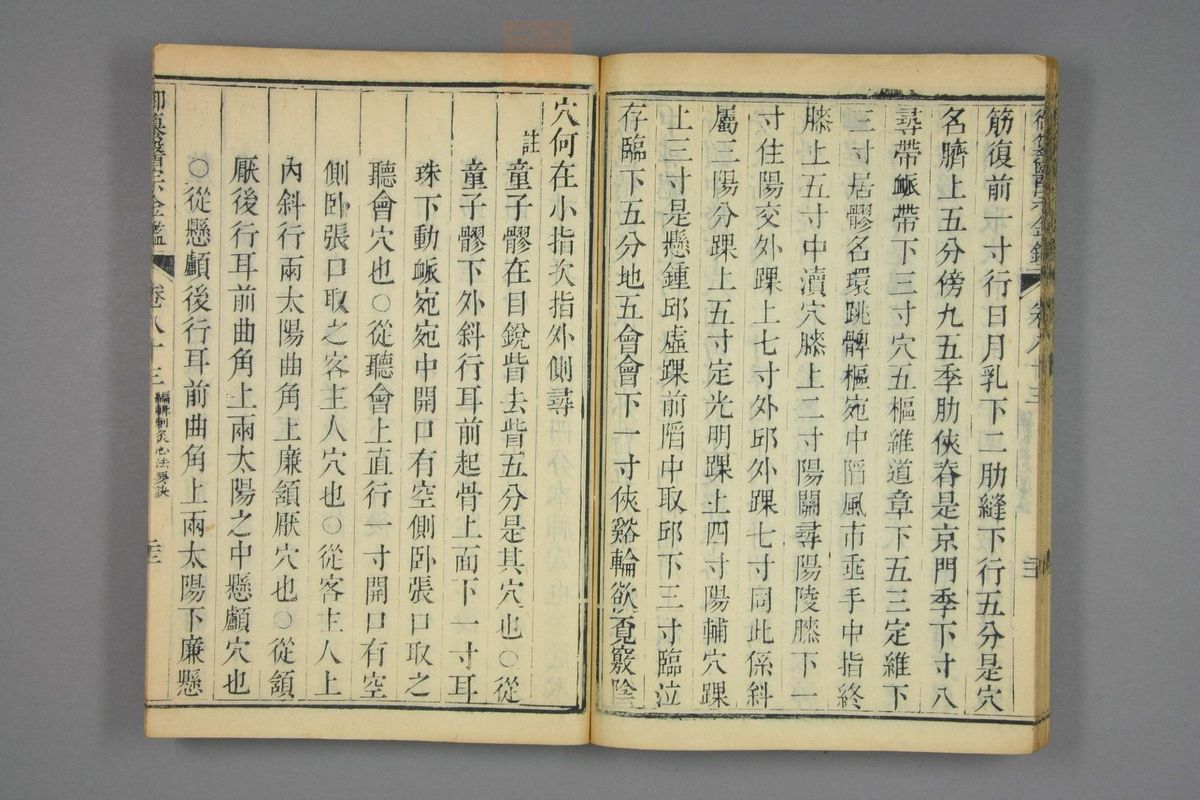 御纂醫宗金鑑 卷八十三
筋復前一寸行日月乳下二肋縫下行五分是穴
名臍上五分傍九五季肋俠脊是京門季下寸八
尋帶脈帶下三寸穴五樞維道章下五三定維下
三寸居髎名環跳髀樞宛中陷風市垂手中指終
膝上五寸中瀆穴膝上二寸陽關尋陽陵膝下一
寸住陽交外踝上七寸外邱外踝七寸同此係斜
屬三陽分踝上五寸定光明踝上四寸陽輔穴踝
上三寸是懸鍾邱虛踝前陷中取邱下三寸臨泣
存臨下五分地五會會下一寸俠谿輪欲覓竅陰
穴何在小指次指外側尋
註 童子髎在目銳眥去眥五分是其穴也○從
童子髎下外斜行耳前起骨上面下一寸耳
珠下動脈宛宛中開口有空側卧張口取之
聽會穴也○從聽會上直行一寸開口有空
側卧張口取之客主人穴也○從客主人上
內斜行兩太陽曲角上廉頷厭穴也○從頷
厭後行耳前曲角上兩太陽之中懸顱穴也
○從懸顱後行耳前曲角上兩太陽下廉懸
御纂醫宗金鑑 卷八十三 編輯刺灸心法要訣